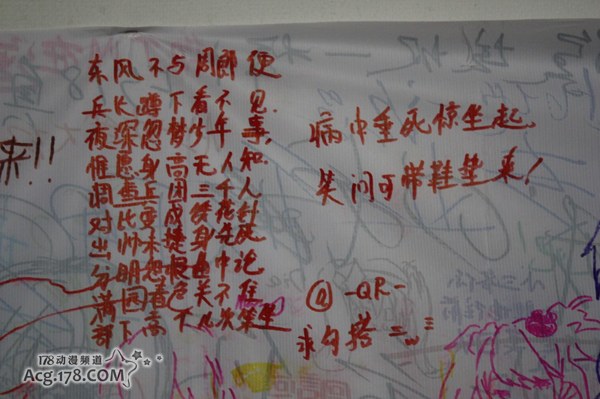 东风不与周郎便
兵长蹲下看不见.
夜深忽梦少年事,
惟愿身高无人知
三千人
对比更成绣花针
出帅未捷身先死
分明 中论
满园春色关不住
部下高
病中垂死惊坐起,
笑问可带鞋垫来!
@-QR-
求勾搭
来!!
178动漫频道
Acg.178.COM